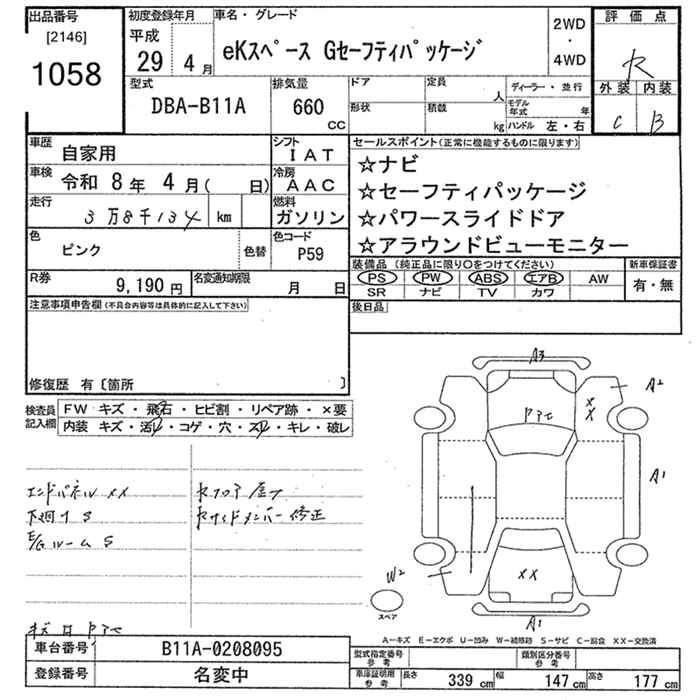 出品番号
[2146]
1058
初度登録年月
平成
29 4 月
車名・グレード
eKスペース Gセーフティパッケージ
2WD
・
4WD
評価点
R
外装 内装
C B
型式
DBA-B11A
排気量
660
CC
ドア
定員
人
ディーラー・並行
形状
積載
kg
モデル年式 年
ハンドル 左・右
車歴
自家用
シフト
IAT
車検
令和 8年 4月( 日)
冷房
AAC
走行
3万8千134 km
燃料
ガソリン
色
ピンク
色替
色コード
P59
R券
9,190 円
名変通知期限
月 日
セールスポイント(正常に機能するものに限ります)
☆ナビ
☆セーフティパッケージ
☆パワースライドドア
☆アラウンドビューモニター
装備品 (純正品に限り○をつけてください)
新車保証書
PS PW ABS エアB AW
SR ナビ TV カワ
有・無
後日品
注意事項申告欄(不具合内容等は具体的に記入して下さい)
修復歴 有〔箇所 〕
検査員記入欄
FW キズ・飛石・ヒビ割・リペア跡・×要
内装 キズ・汚レ・コゲ・穴・スレ・キレ・破レ
エンドパネル XX
下廻り S
E/Gルーム S
Rフロア 歪ミ
Rサイドメンバー 修正
A3
A2
XX
A1
W2
XX
A1
スペア
A-キズ E-エクボ U-凹み W-補修跡 S-サビ C-腐食 XX-交換済
車台番号
B11A-0208095
登録番号
名変中
型式指定番号
参考
類別区分番号
参考
車庫証明用
参考
長さ 339 cm 幅 147 cm 高さ 177 cm